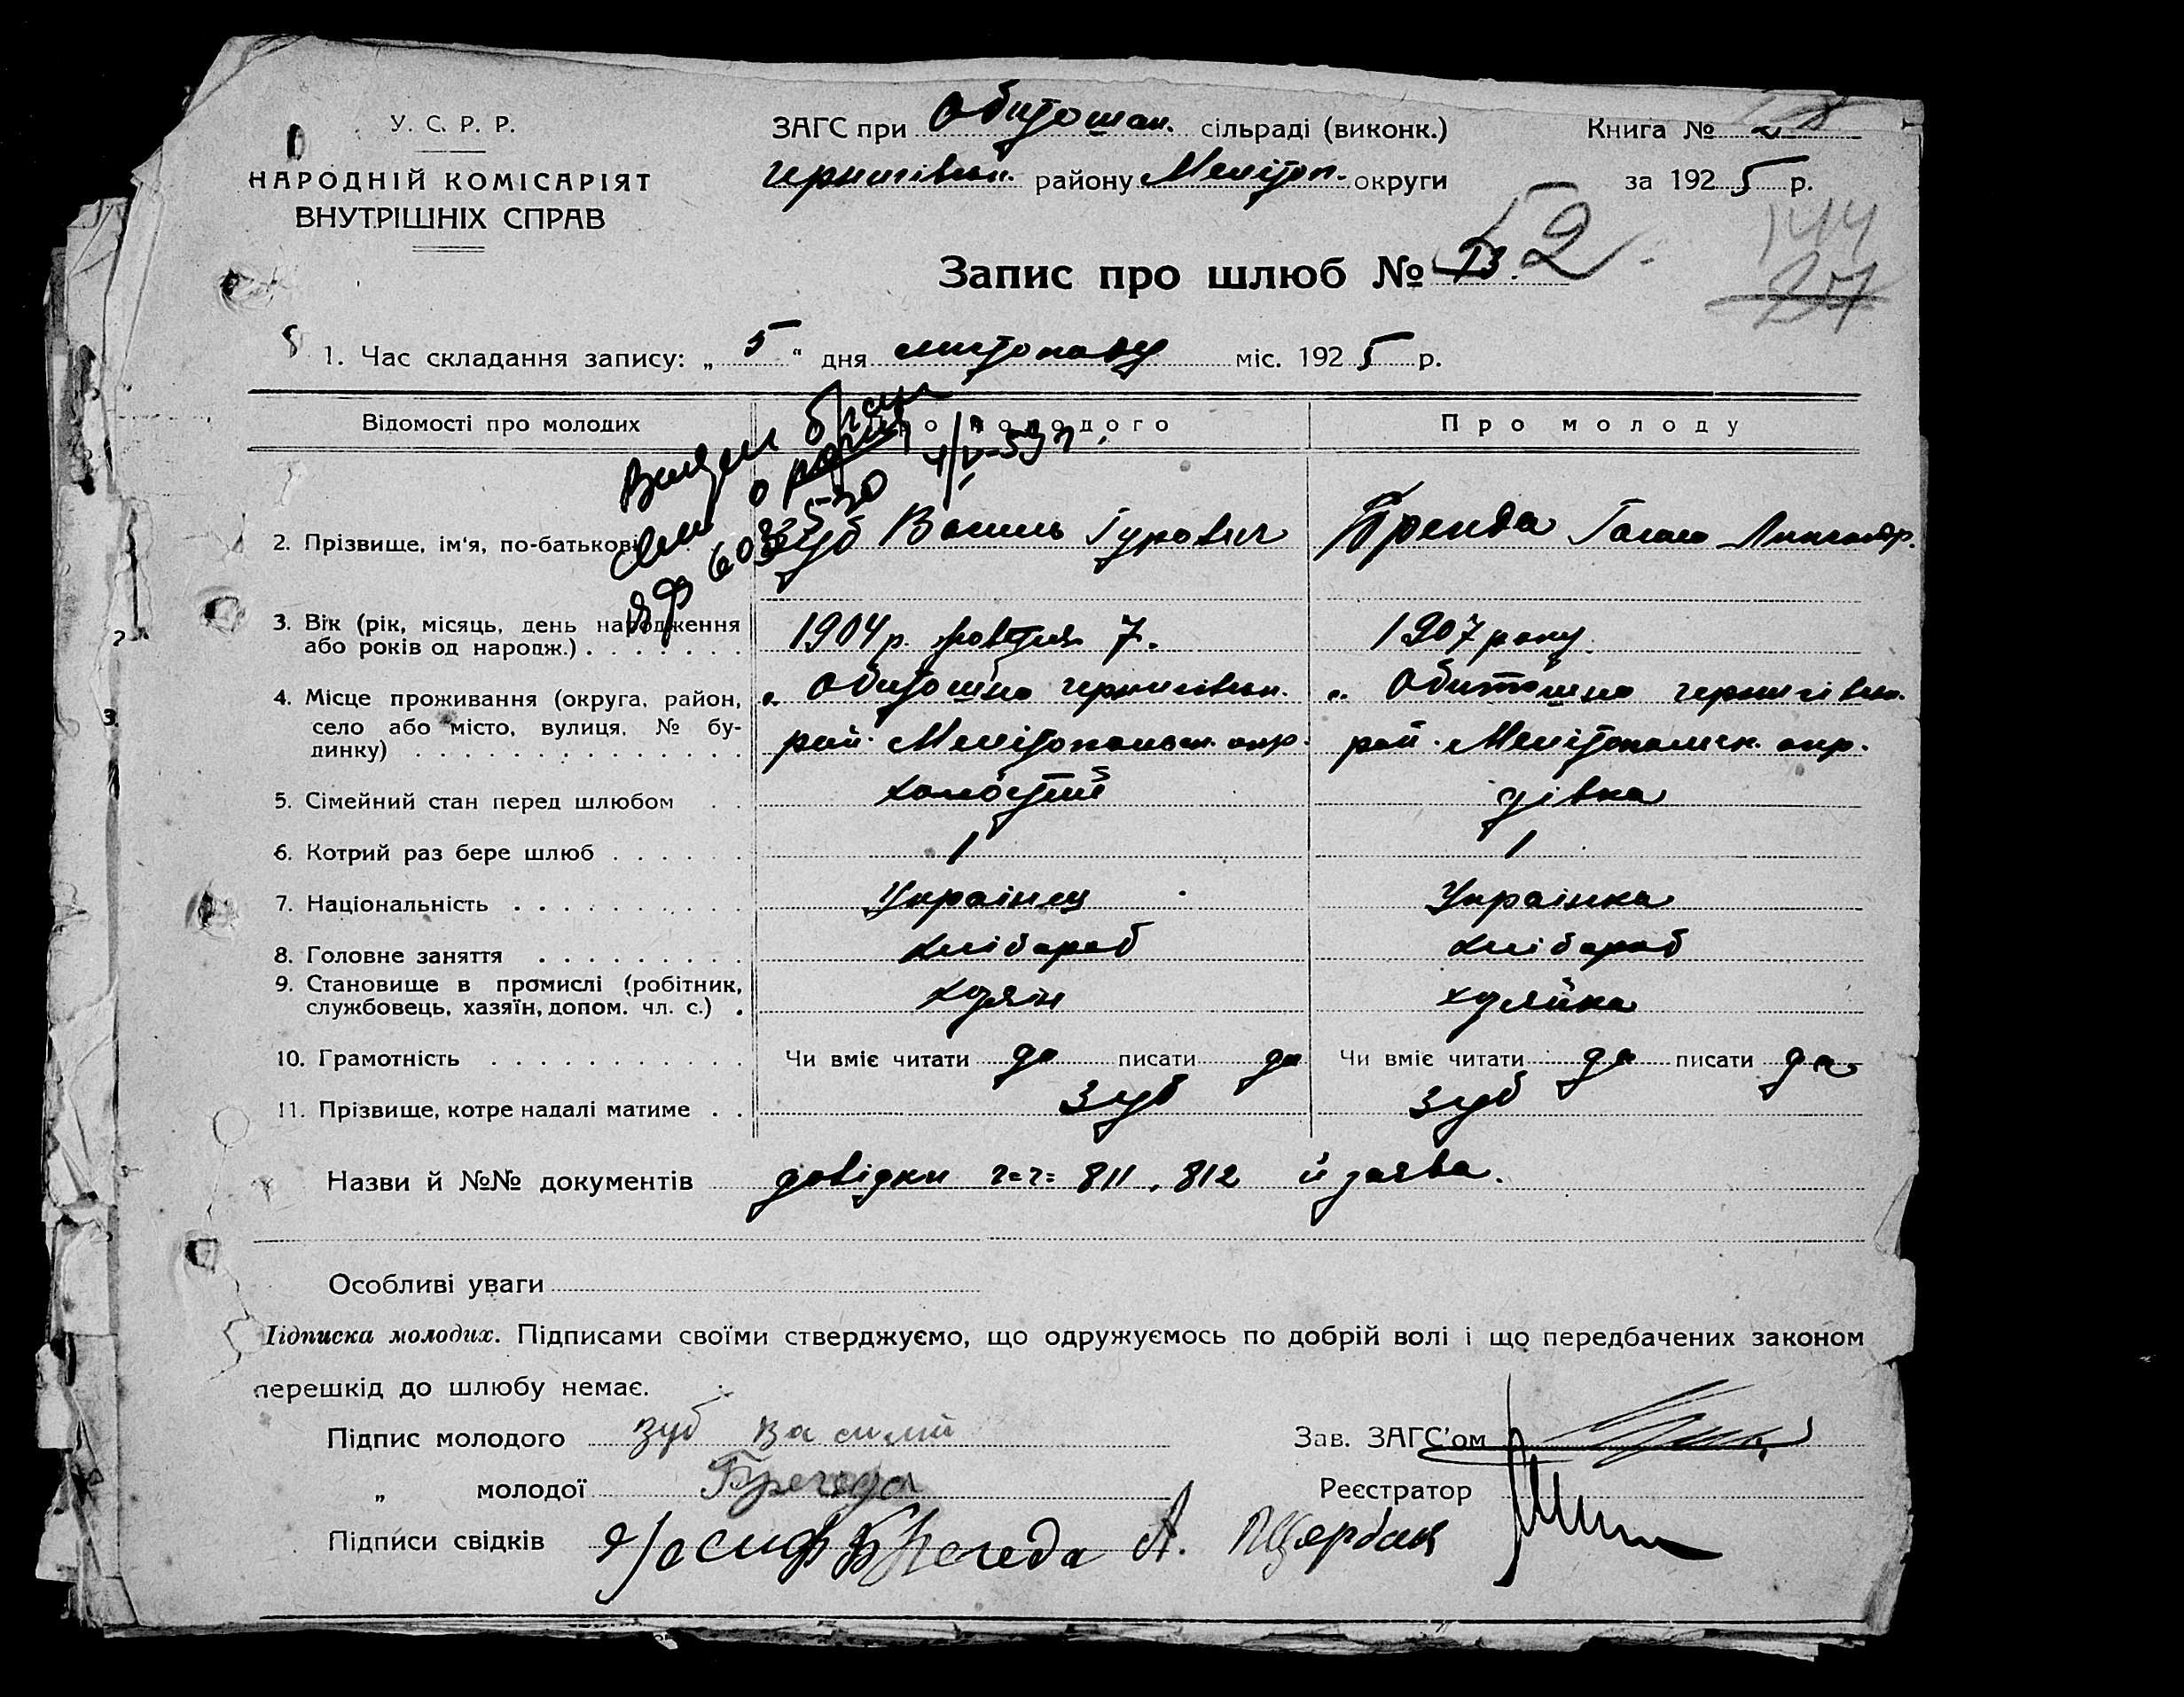 У. С. Р. Р.
НАРОДНІЙ КОМІСАРІЯТ
ВНУТРІШНІХ СПРАВ
ЗАГС при Обиточан. сільраді (виконк.)
чернигівськ. району Мелітоп. округи
Книга №
за 1925 р.
Запис про шлюб № 52
144
1. Час складання запису: „5“ дня листопаду міс. 1925 р.
Відомості про молодих Про молодого Про молоду
2. Прізвище, ім'я, по-батькові Зуб Василь Гурович Ганна
3. Вік (рік, місяць, день народження
або років од народж.) 1904 р. жовтня 7. 1907 року
4. Місце проживання (округа, район,
село або місто, вулиця, № бу-
динку)
с. Обиточна чернигівськ. с. Обиточна чернигівськ.
рай. Мелітопольськ. окр. рай. Мелітопольск. окр.
5. Сімейний стан перед шлюбом холостий дівка
6. Котрий раз бере шлюб 1 1
7. Національність Українец Українка
8. Головне заняття хлібораб хлібораб
9. Становище в промислі (робітник,
службовець, хазяїн, допом. чл. с.) хозяін хозяйка
10. Грамотність Чи вміє читати да писати да Чи вміє читати да писати да
11. Прізвище, котре надалі матиме Зуб Зуб
Назви й №№ документів довідки ч=ч= 811, 812 й заява.
Особливі уваги
Підписка молодих. Підписами своїми стверджуємо, що одружуємось по добрій волі і що передбачених законом
перешкід до шлюбу немає.
Підпис молодого Зуб Василий
Зав. ЗАГС'ом
„ молодої Брегеда
Реєстратор
Підписи свідків Иосиф Брегеда А. Щербак